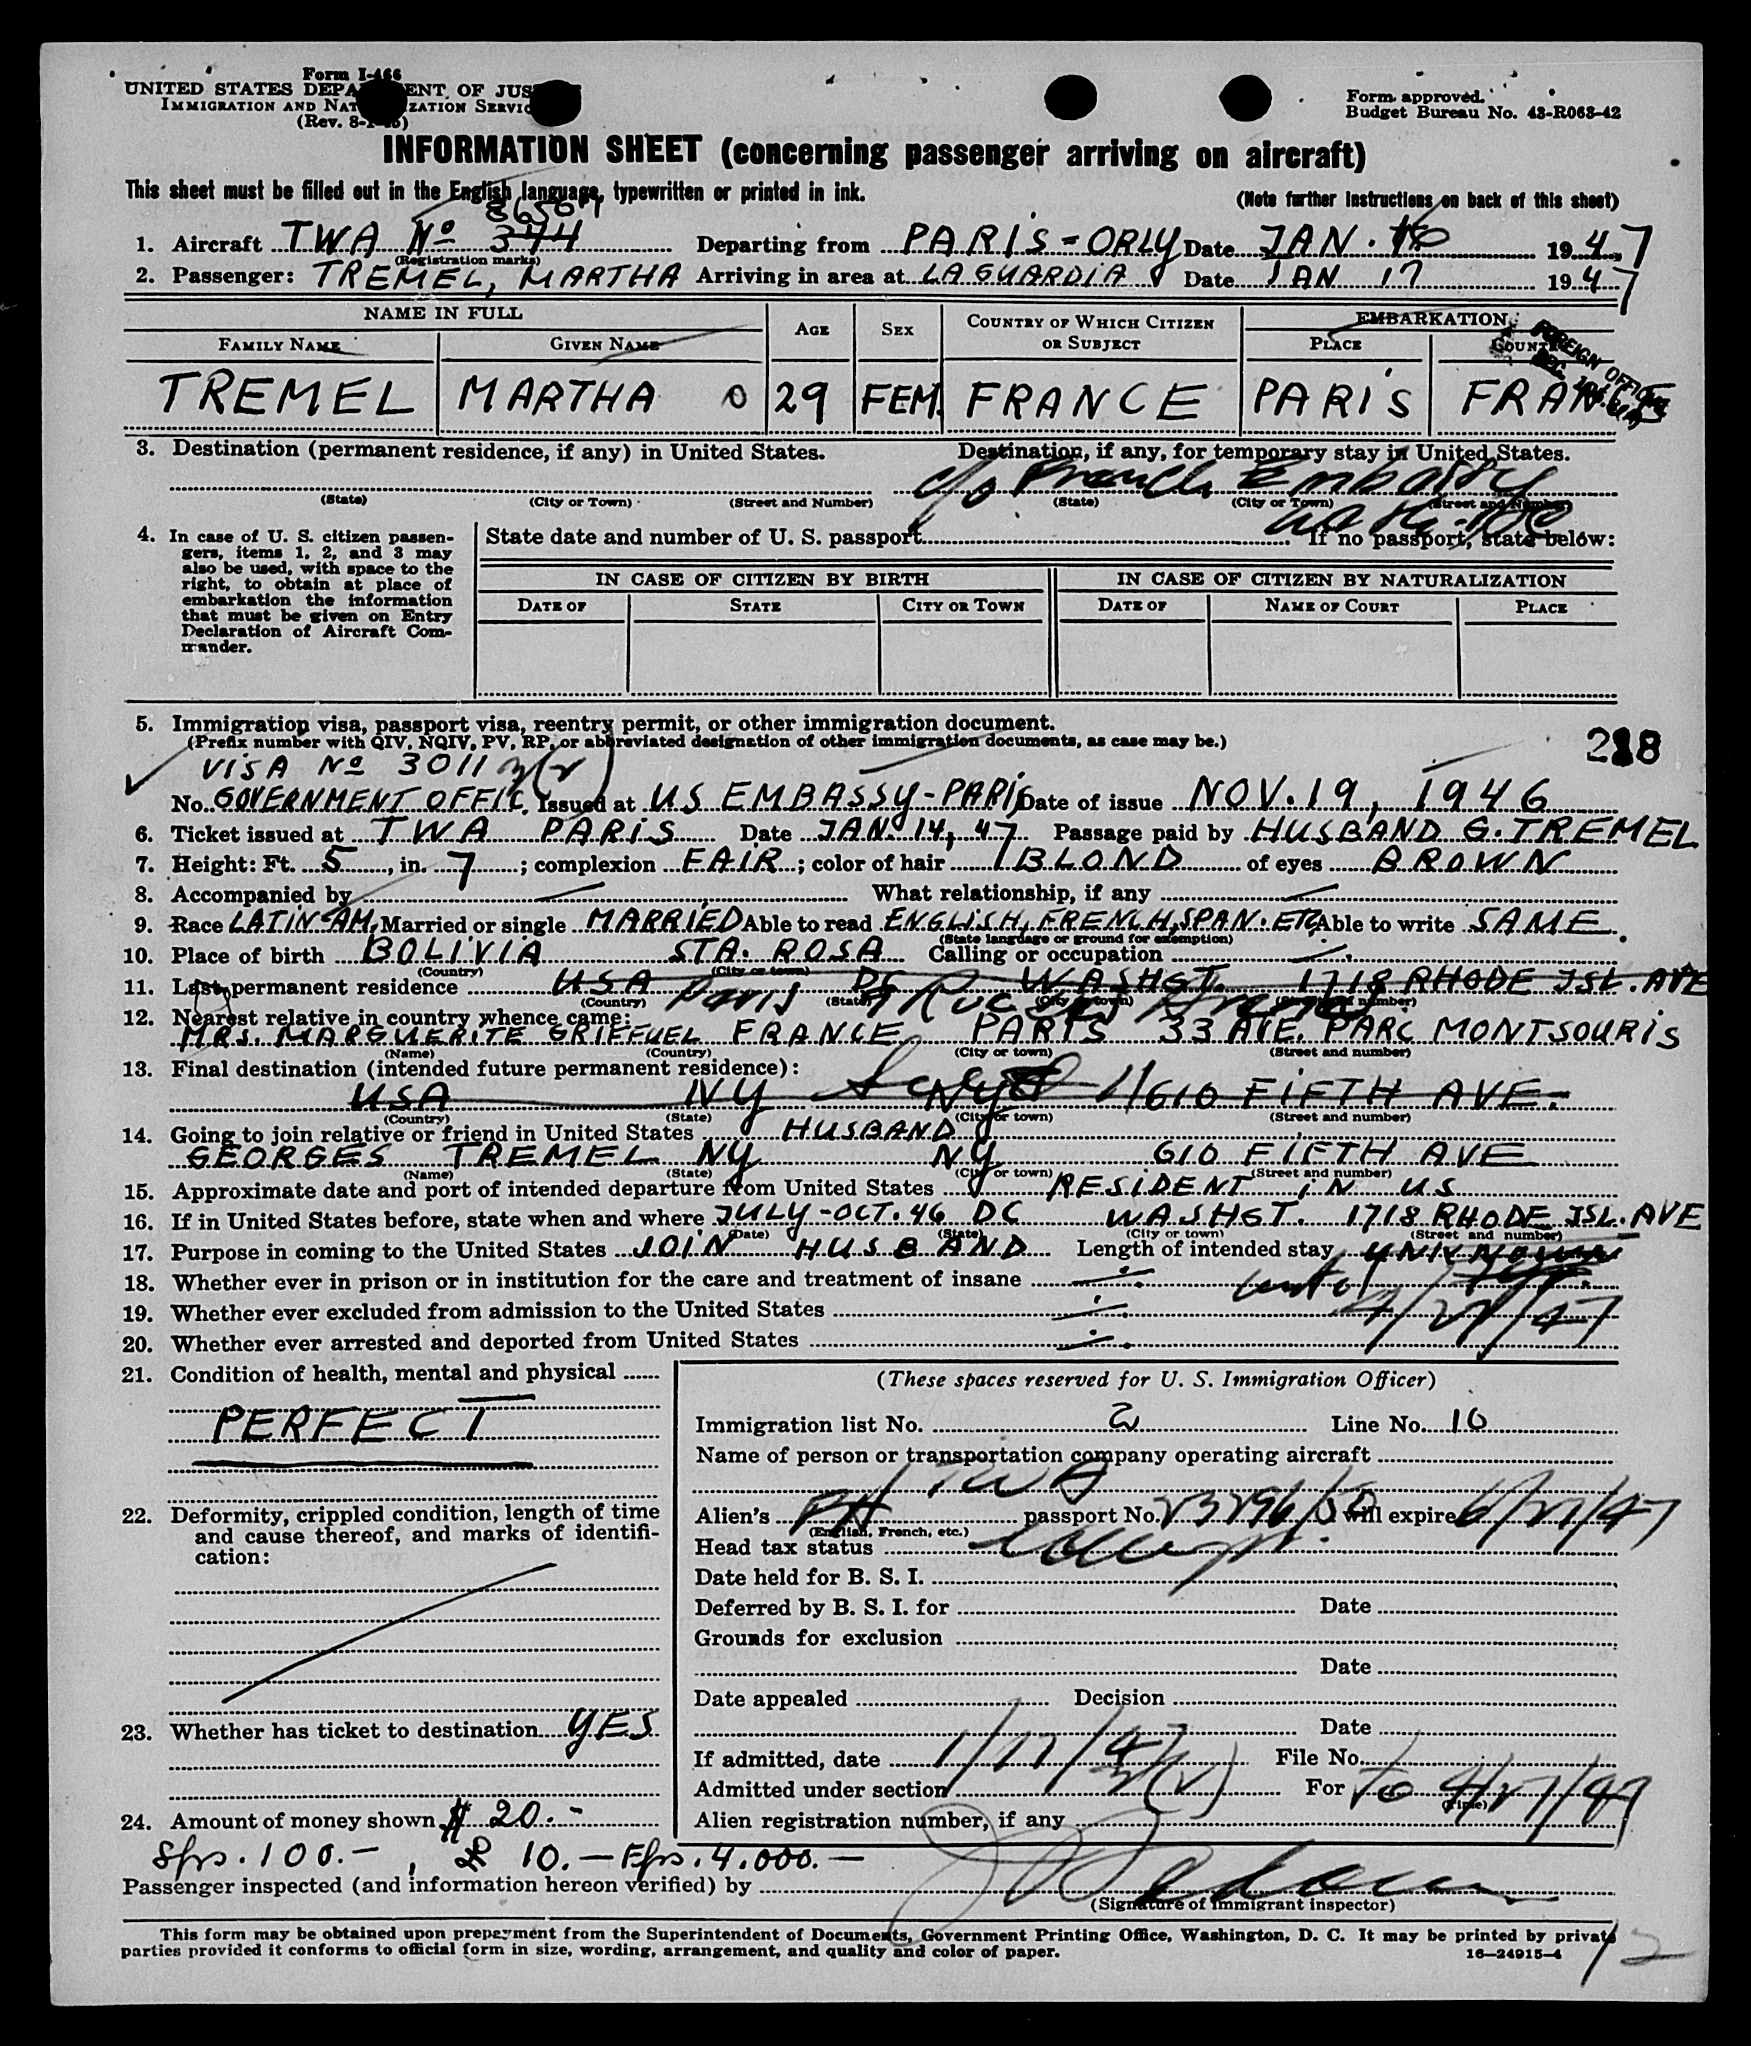 Form I-466
UNITED STATES DEPARTMENT OF JUSTICE
IMMIGRATION AND NATURALIZATION SERVICE
(Rev. 8-1-45)
Form approved.
Budget Bureau No. 43-R063-42
INFORMATION SHEET (concerning passenger arriving on aircraft)
This sheet must be filled out in the English language, typewritten or printed in ink.
(Note further instructions on back of this sheet)
86507
1. Aircraft TWA No 344 Departing from PARIS-ORLY Date JAN. 16 1947
(Registration marks)
2. Passenger: TREMEL, MARTHA Arriving in area at LA GUARDIA Date JAN 17 1947
NAME IN FULL AGE SEX COUNTRY OF WHICH CITIZEN OR SUBJECT EMBARKATION
FAMILY NAME GIVEN NAME PLACE COUNTRY
FOREIGN OFFICE
TREMEL MARTHA 0 29 FEM. FRANCE PARIS FRANCE
3. Destination (permanent residence, if any) in United States. Destination, if any, for temporary stay in United States.
c/o French Embassy
(State) (City or Town) (Street and Number) (State) (City or Town) (Street and Number)
Wash. DC
4. In case of U. S. citizen passengers, items 1, 2, and 3 may also be used, with space to the right, to obtain at place of embarkation the information that must be given on Entry Declaration of Aircraft Commander.
State date and number of U. S. passport If no passport, state below:
IN CASE OF CITIZEN BY BIRTH IN CASE OF CITIZEN BY NATURALIZATION
DATE OF STATE CITY OR TOWN DATE OF NAME OF COURT PLACE
5. Immigration visa, passport visa, reentry permit, or other immigration document.
(Prefix number with QIV, NQIV, PV, RP, or abbreviated designation of other immigration documents, as case may be.)
218
VISA No 3011 3(2)
No. GOVERNMENT OFFIC. Issued at US EMBASSY-PARIS Date of issue NOV. 19, 1946
6. Ticket issued at TWA PARIS Date JAN. 14, 47 Passage paid by HUSBAND G. TREMEL
7. Height: Ft. 5, in. 7; complexion FAIR; color of hair BLOND of eyes BROWN
8. Accompanied by What relationship, if any
9. Race LATIN AM. Married or single MARRIED Able to read ENGLISH, FRENCH, SPAN. ETC Able to write SAME.
(State language or ground for exemption)
10. Place of birth BOLIVIA STA. ROSA Calling or occupation
(Country) (City or town)
11. Last permanent residence USA DC WASHGT. 1718 RHODE ISL. AVE
(Country) (State) (City or town) (Street and number)
Paris
12. Nearest relative in country whence came:
MRS. MARGUERITE GRIFFUEL FRANCE PARIS 33 AVE. PARC MONTSOURIS
(Name) (Country) (City or town) (Street and number)
13. Final destination (intended future permanent residence):
USA NY NY 610 FIFTH AVE.
(Country) (State) (City or town) (Street and number)
14. Going to join relative or friend in United States HUSBAND
GEORGES TREMEL NY NY 610 FIFTH AVE
(Name) (State) (City or town) (Street and number)
15. Approximate date and port of intended departure from United States RESIDENT IN US
16. If in United States before, state when and where JULY-OCT. 46 DC WASHGT. 1718 RHODE ISL. AVE
(Date) (State) (City or town) (Street and number)
17. Purpose in coming to the United States JOIN HUSBAND Length of intended stay
18. Whether ever in prison or in institution for the care and treatment of insane
19. Whether ever excluded from admission to the United States 4/27/47
20. Whether ever arrested and deported from United States
21. Condition of health, mental and physical
PERFECT
22. Deformity, crippled condition, length of time and cause thereof, and marks of identification:
23. Whether has ticket to destination YES
24. Amount of money shown $ 20.-
Sfrs. 100.- , £ 10.- Ffrs. 4.000.-
(These spaces reserved for U. S. Immigration Officer)
Immigration list No. 2 Line No. 10
Name of person or transportation company operating aircraft
TWA
Alien's FR passport No. 23296/50 will expire 6/27/47
(English, French, etc.)
Head tax status
Date held for B. S. I.
Deferred by B. S. I. for Date
Grounds for exclusion
Date
Date appealed Decision
Date
If admitted, date 1/17/47 File No.
Admitted under section 3(2) For to 4/27/47
(Time)
Alien registration number, if any
Passenger inspected (and information hereon verified) by
(Signature of immigrant inspector)
This form may be obtained upon prepayment from the Superintendent of Documents, Government Printing Office, Washington, D. C. It may be printed by private
parties provided it conforms to official form in size, wording, arrangement, and quality and color of paper. 16—24915-4